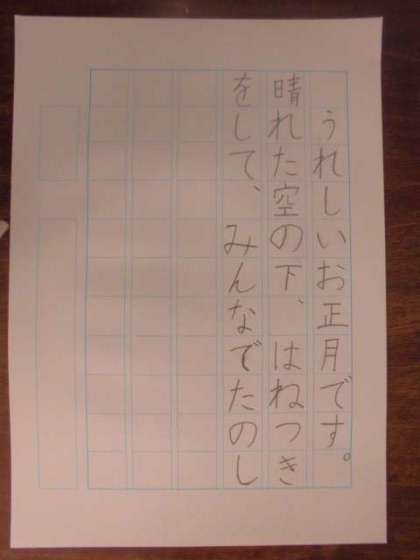 うれしいお正月です。
晴れた空の下、はねつき
をして、みんなでたのし